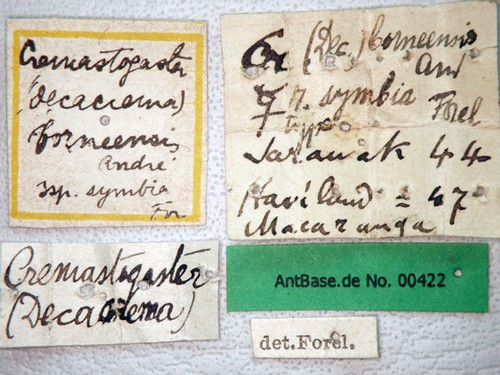 Cremastogaster
(decacrema)
borneensis
André
ssp. symbia
For
Cr (Dec.) borneensis
And
☿ r. symbia Forel
type
Sarawak 44
Haviland = 47
Macaranga
Cremastogaster
(Decacrema)
AntBase.de No. 00422
det.Forel.